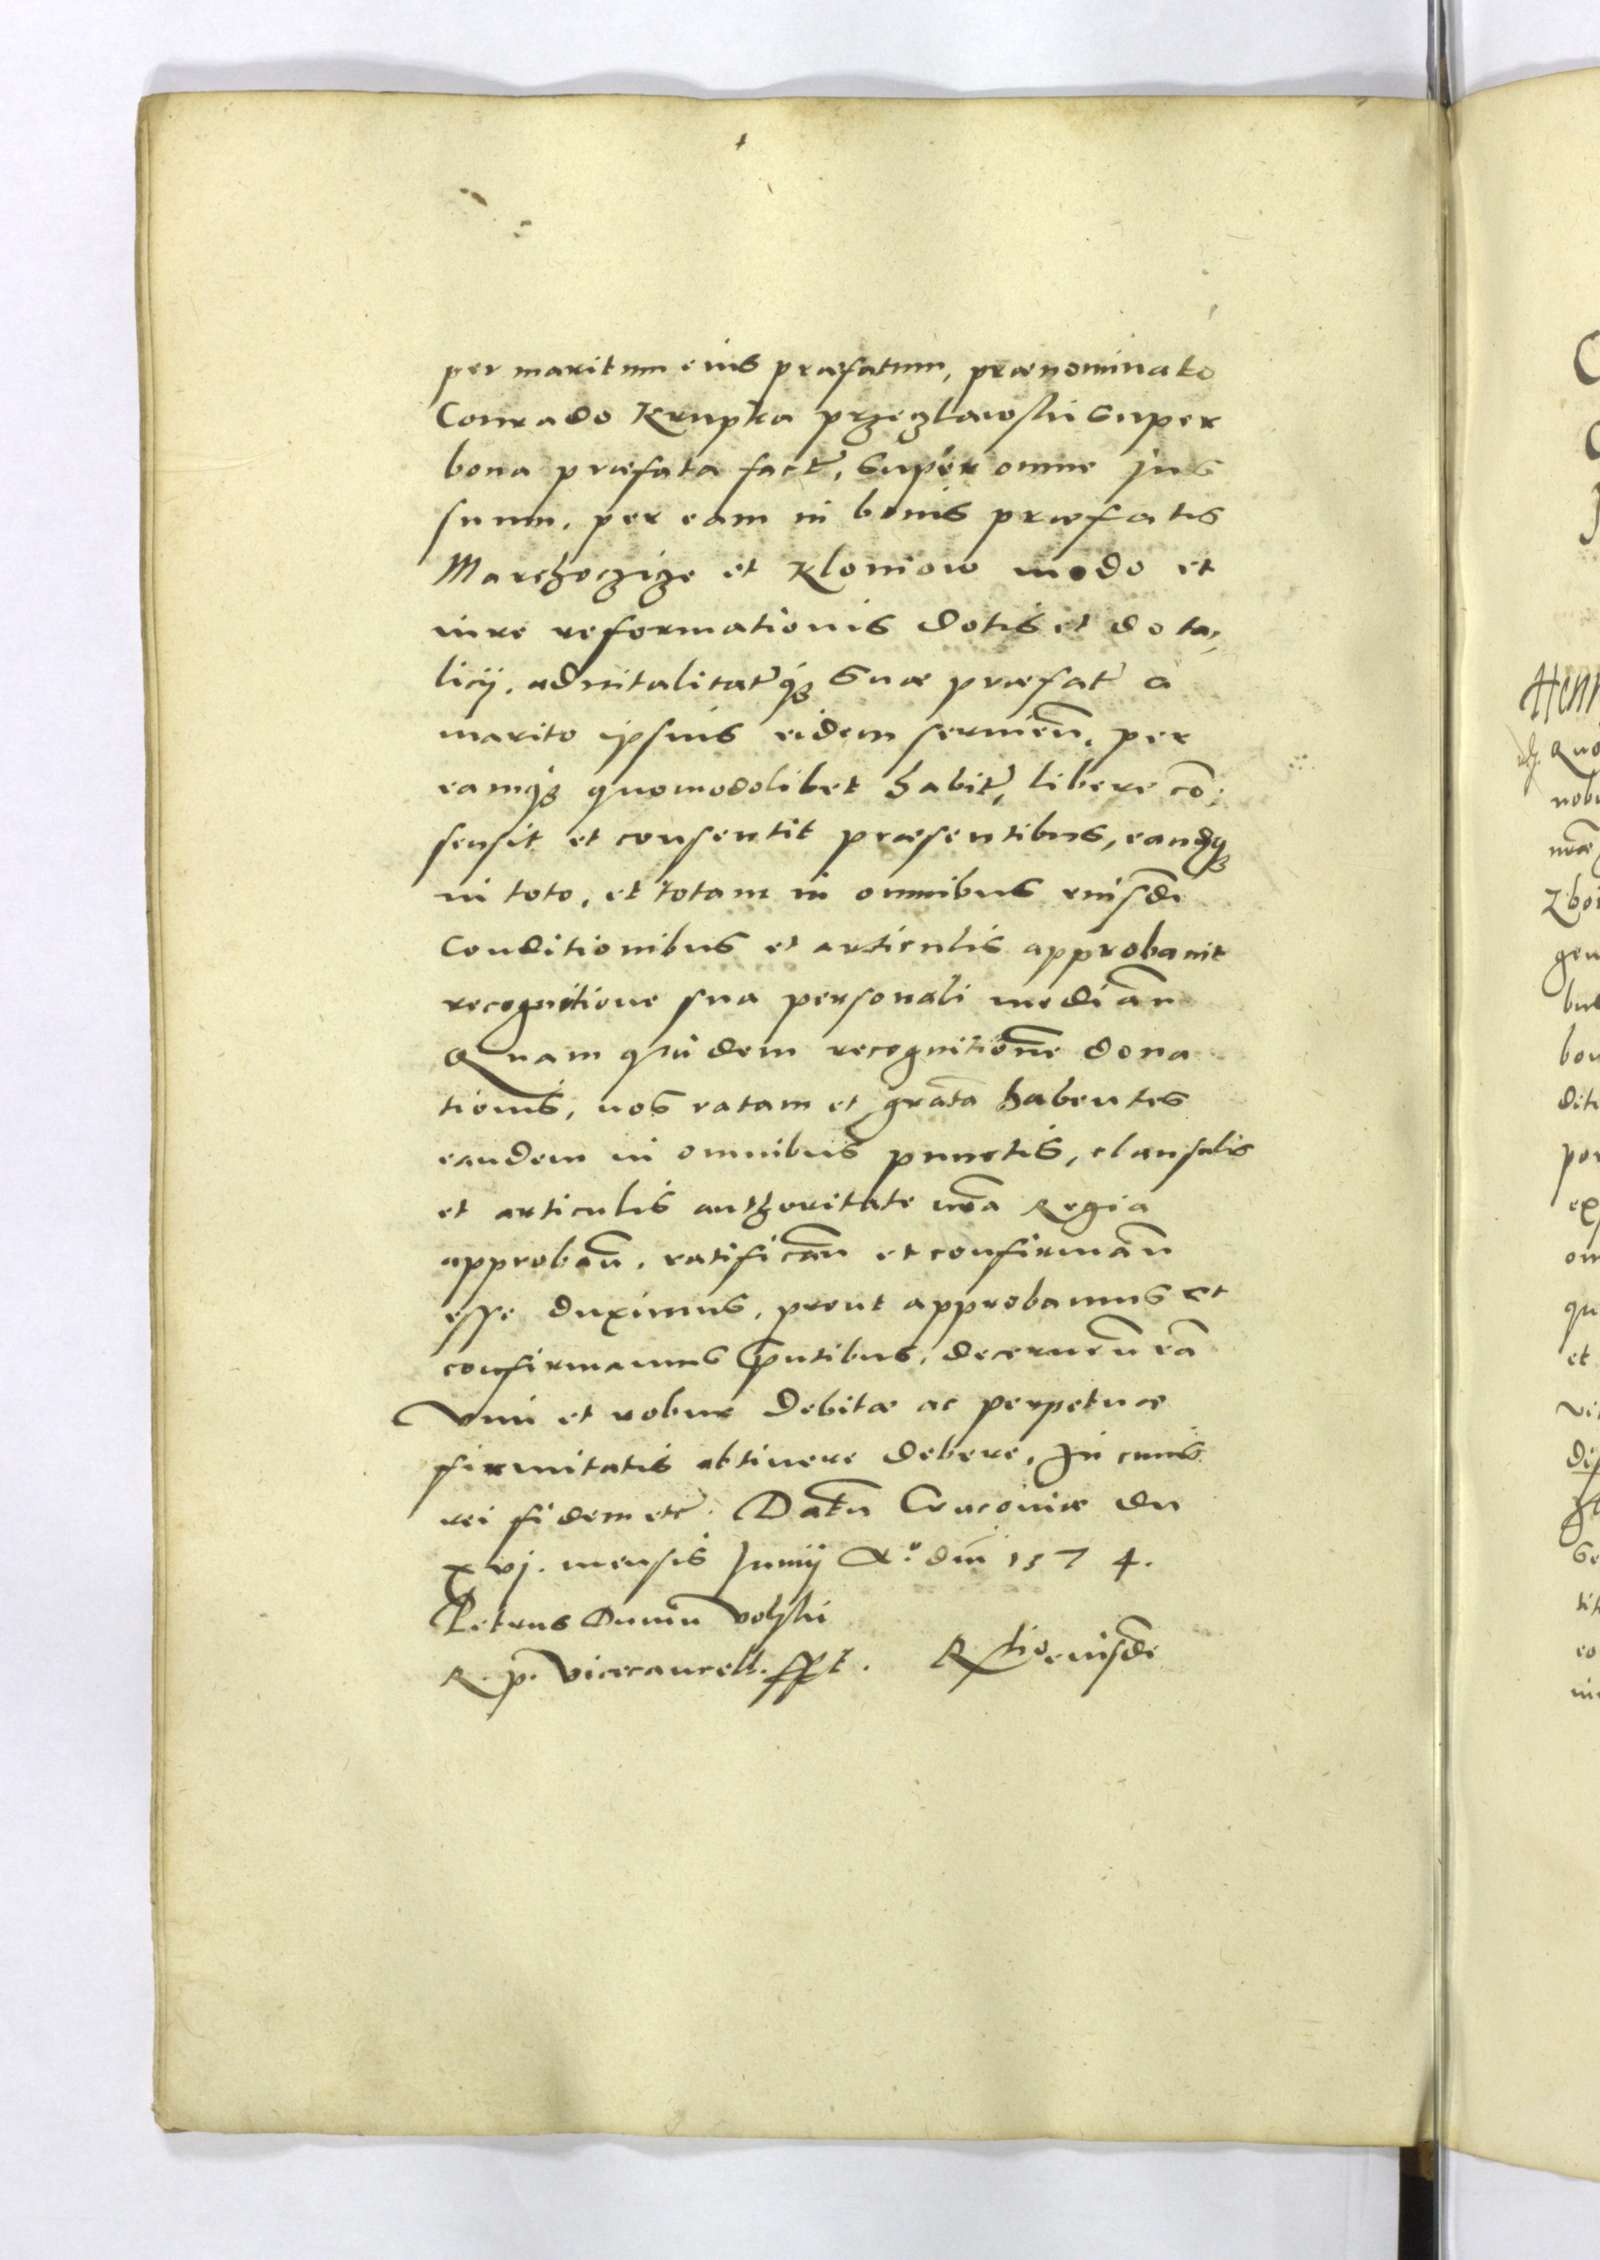 per maritum eius præfatum, prænominato
Conrado Krupka przezlawski super
bona præfata fact̃, super omne jus
suum, per eam in bonis præfatis
Marchoczicze et Kloniow modo et
iure reformationis dotis et dota,
licij, aduitalitat̃q₃ suæ præfat̃ a
marito ipsius eidem seruieñ, per
eamq₃ quomodolibet habit̃, libere cõ:
sensit et consentit præsentibus, eandq₃
in toto, et totam in omnibus eiusdẽ
Conditionibus et articulis approbauit
recognitione sua personali mediañ
Quam quidem recognitionẽ dona
tionis, nos ratam et gratã habentes
eandem in omnibus punctis, clausulis
et articulis authoritate nr̃a Regia
approbañ, ratificañ et confirmañ
esse duximus, prout approbamus et
confirmamus p̃ntibus, decerneñ eã
vim et robur debitæ ac perpetuæ
firmitatis obtinere debere, In cuius
rei fidem etc̃. Dat̃n Cracouiæ die
xvj. mensis Junij A.º dñi 1574.
Petrus Dunin Volski
R. p. Vicecancell. sspt. Rtio eiusdẽ
Henr
Quo
nobi
nr̃æ
Zbor
gen
bus
bon
diti
por
ex
om
qu
et
vi
dis
se
tit
eo